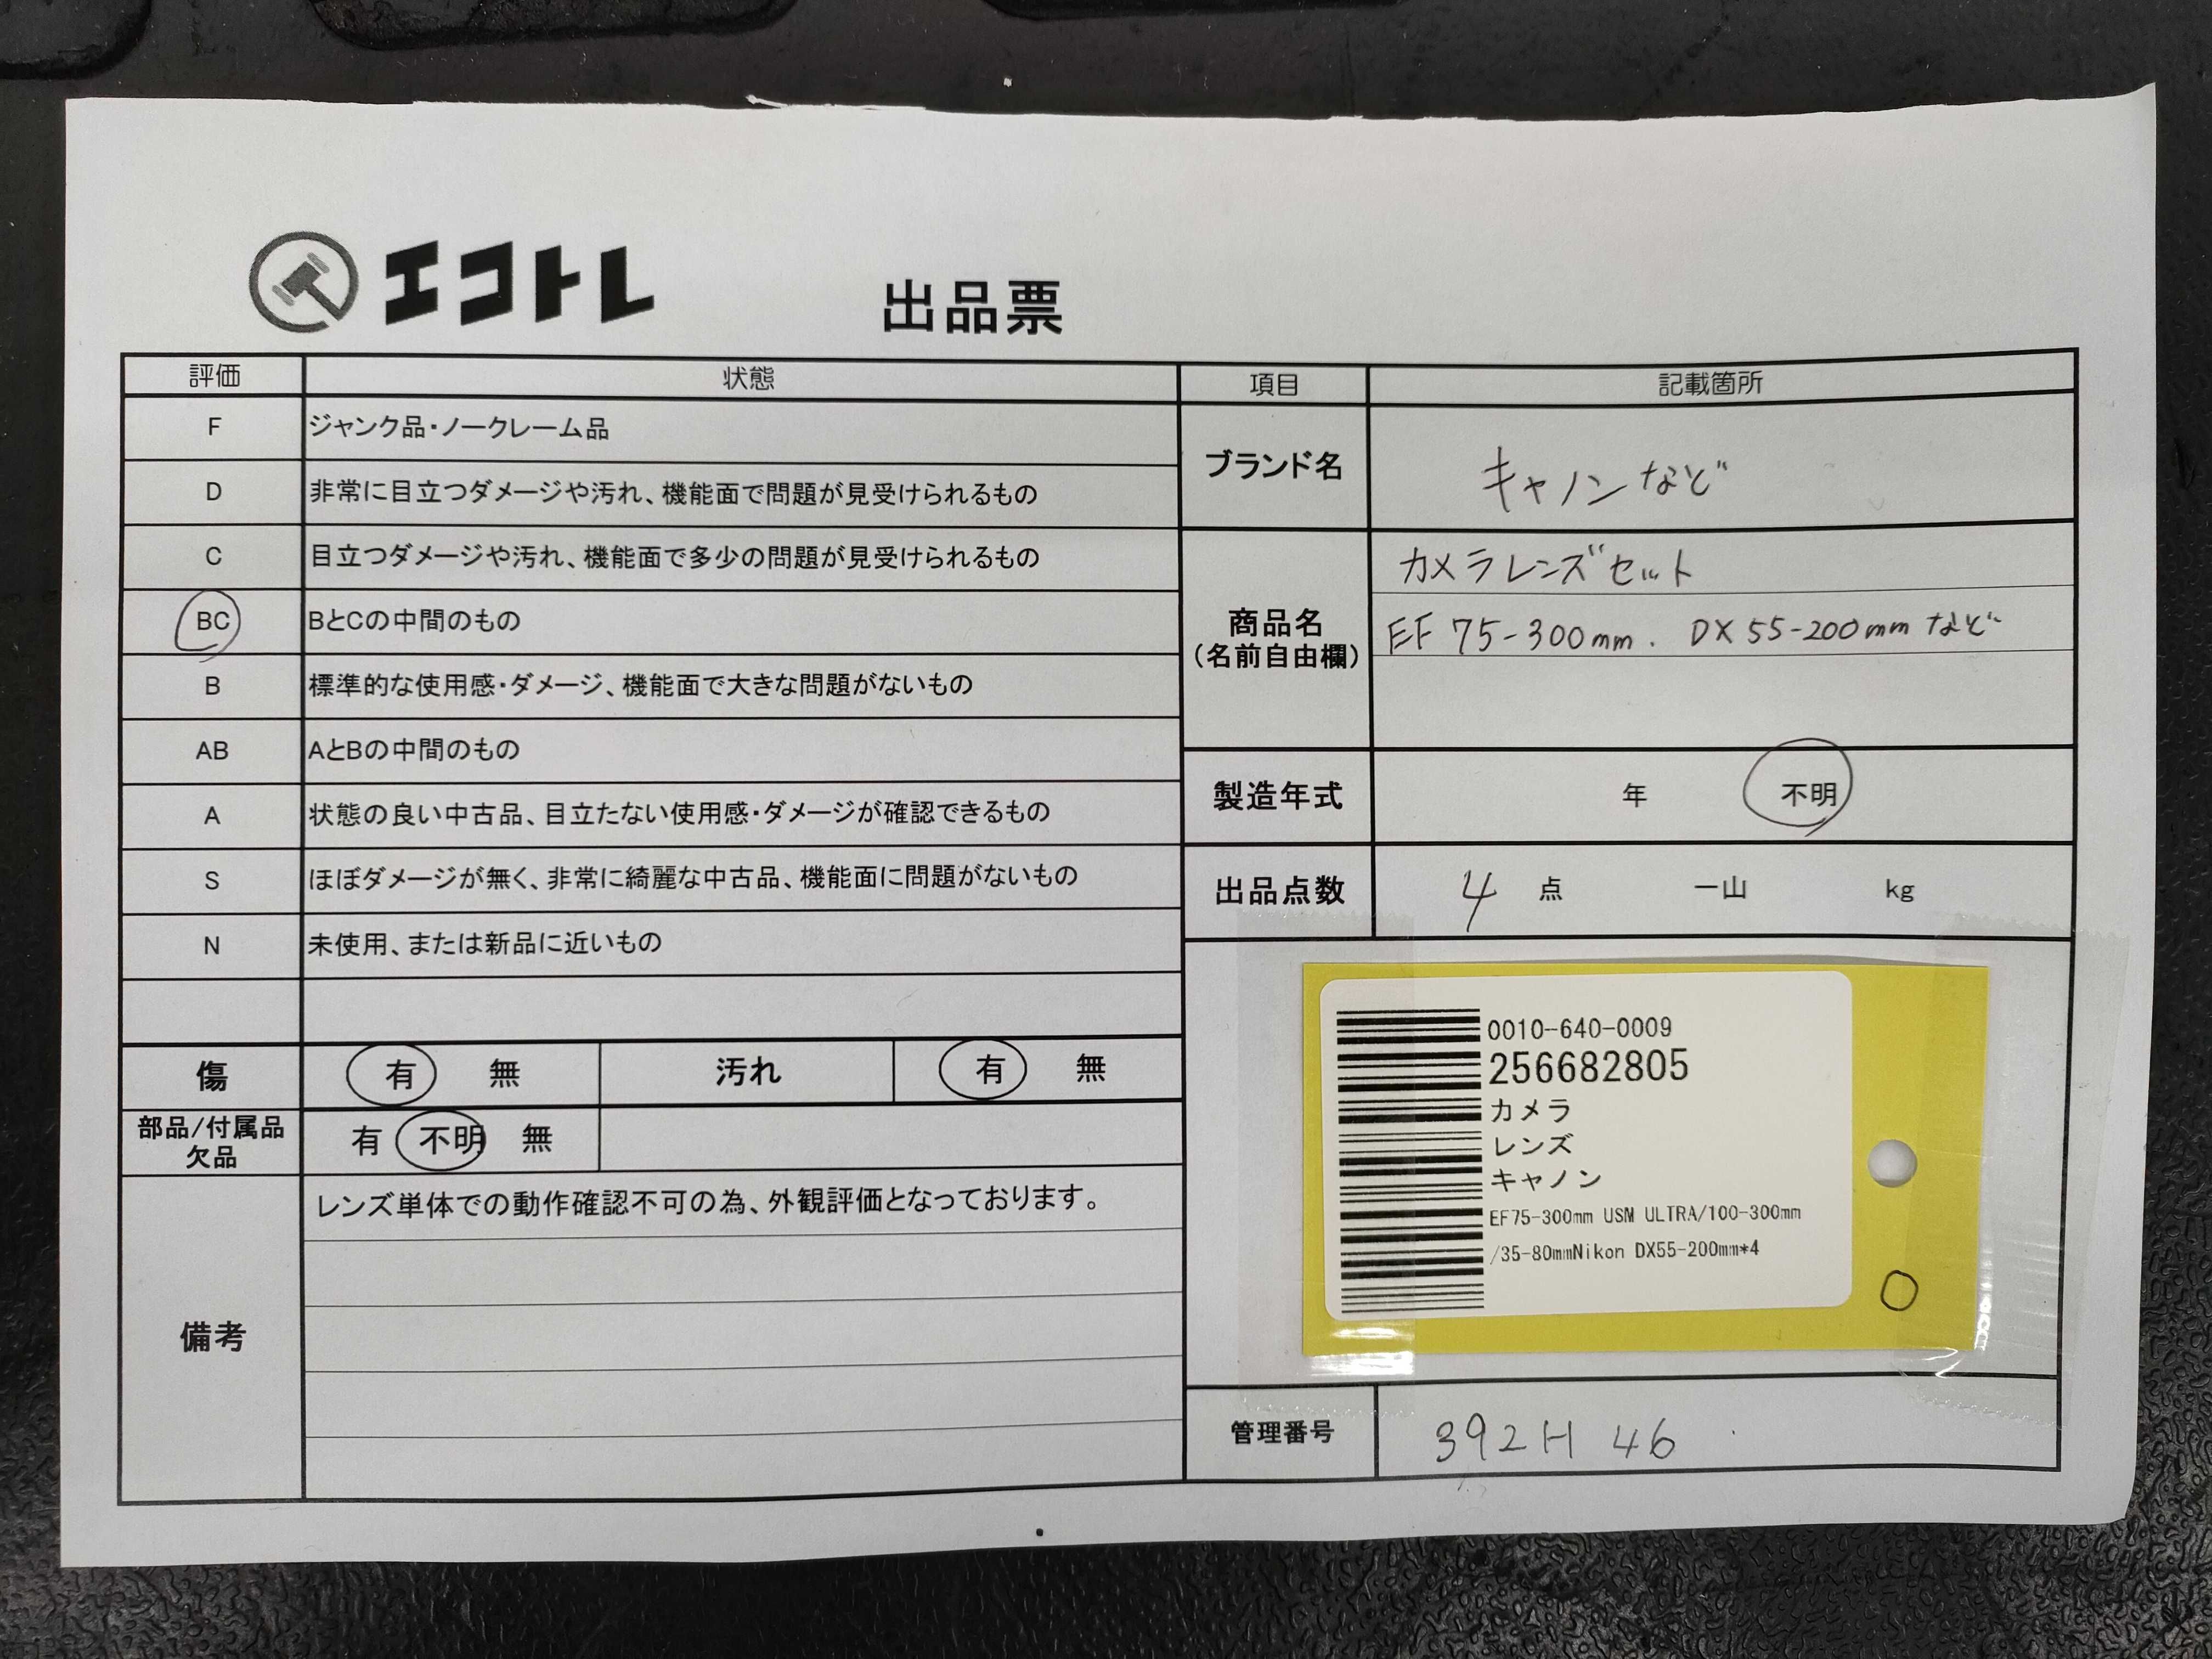 エコトレ
出品票
評価 状態
F ジャンク品・ノークレーム品
D 非常に目立つダメージや汚れ、機能面で問題が見受けられるもの
C 目立つダメージや汚れ、機能面で多少の問題が見受けられるもの
BC BとCの中間のもの
B 標準的な使用感・ダメージ、機能面で大きな問題がないもの
AB AとBの中間のもの
A 状態の良い中古品、目立たない使用感・ダメージが確認できるもの
S ほぼダメージが無く、非常に綺麗な中古品、機能面に問題がないもの
N 未使用、または新品に近いもの
傷 有 無 汚れ 有 無
部品/付属品
欠品
有 不明 無
備考
レンズ単体での動作確認不可の為、外観評価となっております。
項目 記載箇所
ブランド名 キャノンなど
商品名
(名前自由欄)
カメラレンズセット
EF 75-300mm. DX 55-200mm など
製造年式 年 不明
出品点数 4 点 一山 kg
0010-640-0009
256682805
カメラ
レンズ
キャノン
EF75-300mm USM ULTRA/100-300mm
/35-80mmNikon DX55-200mm*4
管理番号 392H 46